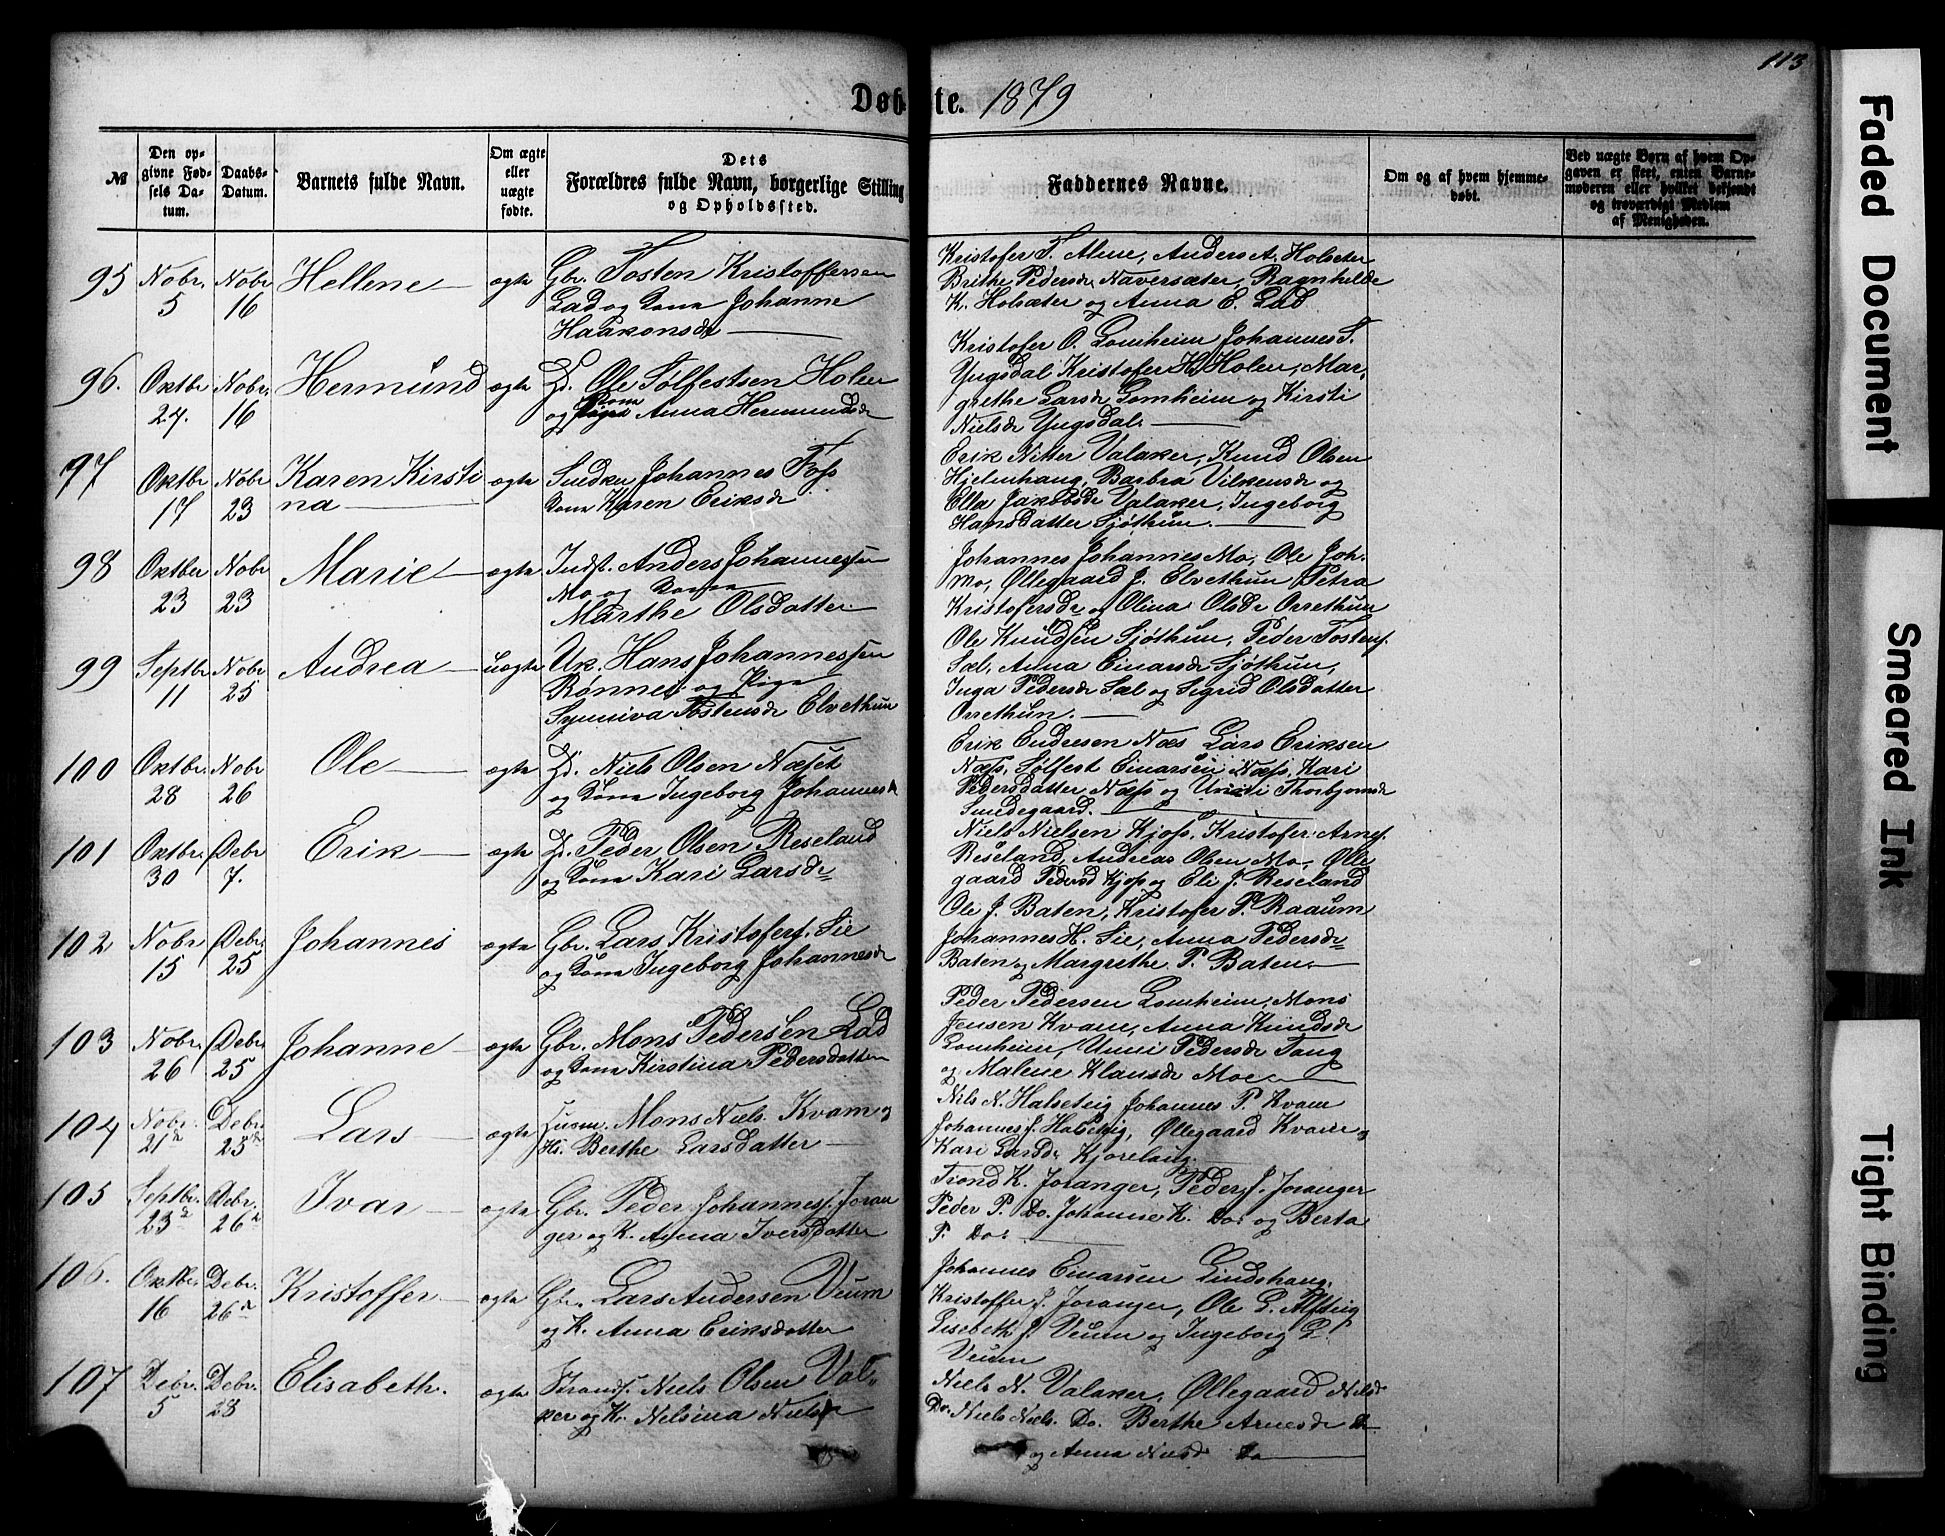 113
Døbte. 1879
№
Den op-
givne Fød-
sels Da-
tum.
Daabs-
Datum.
Barnets fulde Navn.
Om ægte
eller
uægte
fødte.
Dets
Forældres fulde Navn, borgerlige Stilling
og Opholdssted.
Faddernes Navne.
Om og af hvem hjemme-
døbt.
Ved uægte Børn af hvem Op-
gaven er skeet, enten Barne-
moderen eller hvilket bekjendt
og troværdigt Medlem
af Menigheden.
95 Nobr. 5 Nobr 16 Hellene ægte Gbr. Tosten Kristoffersen
Lad og Kone Johanne
Haakonsdr
Kristofer T. Alme, Anders A. Holsæter
Brithe Pedersdr Naversæter, Ragnhilde
K. Holsæter og Anna E. Lad
96. Oktbr 27. Nobr. 16 Hermund ægte Hd. Ole Sølfestsen Holen
og Kone Anna Hermundsdr
Kristofer O. Lomheim Johannes S.
Yngsdal Kristofer H. Holen, Mar-
grethe Larsdr Lomheim og Kirsti
Nielsdr Yngsdal.
97 Oktbr 17 Nobr 23 Karen Kirsti
na ægte Snedker Johannes Foss
Kone Karen Eriksdr
Erik Nitter Valaker, Knud Olsen
Hjelmhaug, Barbra Vilkensdr og
Ella Jakobsdr Valaker, Ingeborg
Hansdatter Sjøthun.
98 Oktber 23 Nobr 23 Marie ægte Indst. Anders Johannessen
Mo og Kone
Marthe Olsdatter
Johannes Johannes Mo, Ole Joh.
Mo, Øllegaard J. Elvethun Petra
Kristofersdr og Olina Olsdr Orrethun
99 Septbr 11 Nobr 25 Andrea uægte Uk. Hans Johannessen
Rønnei og Pige
Synneva Tostensdr Elvethun
Ole Knudsen Sjøthun, Peder Tostens.
Sæl, Anna Einarsdr Sjøthun,
Inga Pedersdr Sæl og Sigrid Olsdatter
Orrethun.
100 Oktbr. 28 Nobr 26 Ole ægte Hd. Niels Olsen Næset
og Kone Ingeborg Johannesdr
Erik Endresen Næs Lars Eriksen
Næss, Sølfest Einarsen Næss, Kari
Pedersdatter Næss og Unni Thorbjornsdr
Sundegaard.
101 Oktbr. 30 Debr 7. Erik ægte Hd. Peder Olsen Reseland
og Kone Kari Larsdr
Niels Nielsen Kjoss, Kristofer Arnes.
Reseland, Andreas Olsen Mo, Ølle
gaard Pedersd Kjoss og Eli J. Reseland
102 Nobr 15 Debr. 25 Johannes ægte Gbr. Lars Kristofers. Sie
og Kone Ingeborg Johannesdr
Ole J. Baten, Kristofer P. Raaum
Johannes H. Sie, Anna Pedersdr
Baten og Margrethe P. Baten
103 Nobr. 26 Debr. 25 Johanne ægte Gbr. Mons Pedersen Lad
og Kone Kirstina Pedersdatter
Peder Pedersen Lomheim, Mons
Jensen Kvam, Anna Knudsdr
Lomheim, Unni Pedersdr Tang
og Malene Klausdr Moe
104 Nobr. 21de Debr. 25de Lars ægte Husm. Mons Niels. Kvam og
Hs. Berthe Larsdatter
Nils N. Halsetvig Johannes P. Kvam
Johannes J. Halsetvig, Øllegaard Kvam og
Kari Larsdr Kjorelaug.
105 Septbr. 23d Debr. 26d Ivar ægte Gbr. Peder Johannes. Joran
ger og K. Anna Iversdatter
Trond K. Joranger, Peder J. Joranger
Peder P. Do. Johanne K. Do. og Berta
P. Do.
106. Oktbr. 16 Debr. 26d Kristoffer ægte Gbr. Lars Andersen Veum
og K. Anna Eriksdatter
Johannes Einarsen Lindshaug,
Kristoffer J. Joranger, Ole L.
Lisebeth J. Veum og Ingeborg L.
Veum
107 Debr. 5 Debr. 28 Elisabeth. ægte Strands. Niels Olsen Val-
ker og K. Nelsina Nielsdr
Niels N. Valaker, Øllegaard Nilsdr
Do. Niels Niels. Do. Berthe Arnesdr Do
og Anna Nilsdr Do
Faded Document
Smeared Ink
Tight Binding